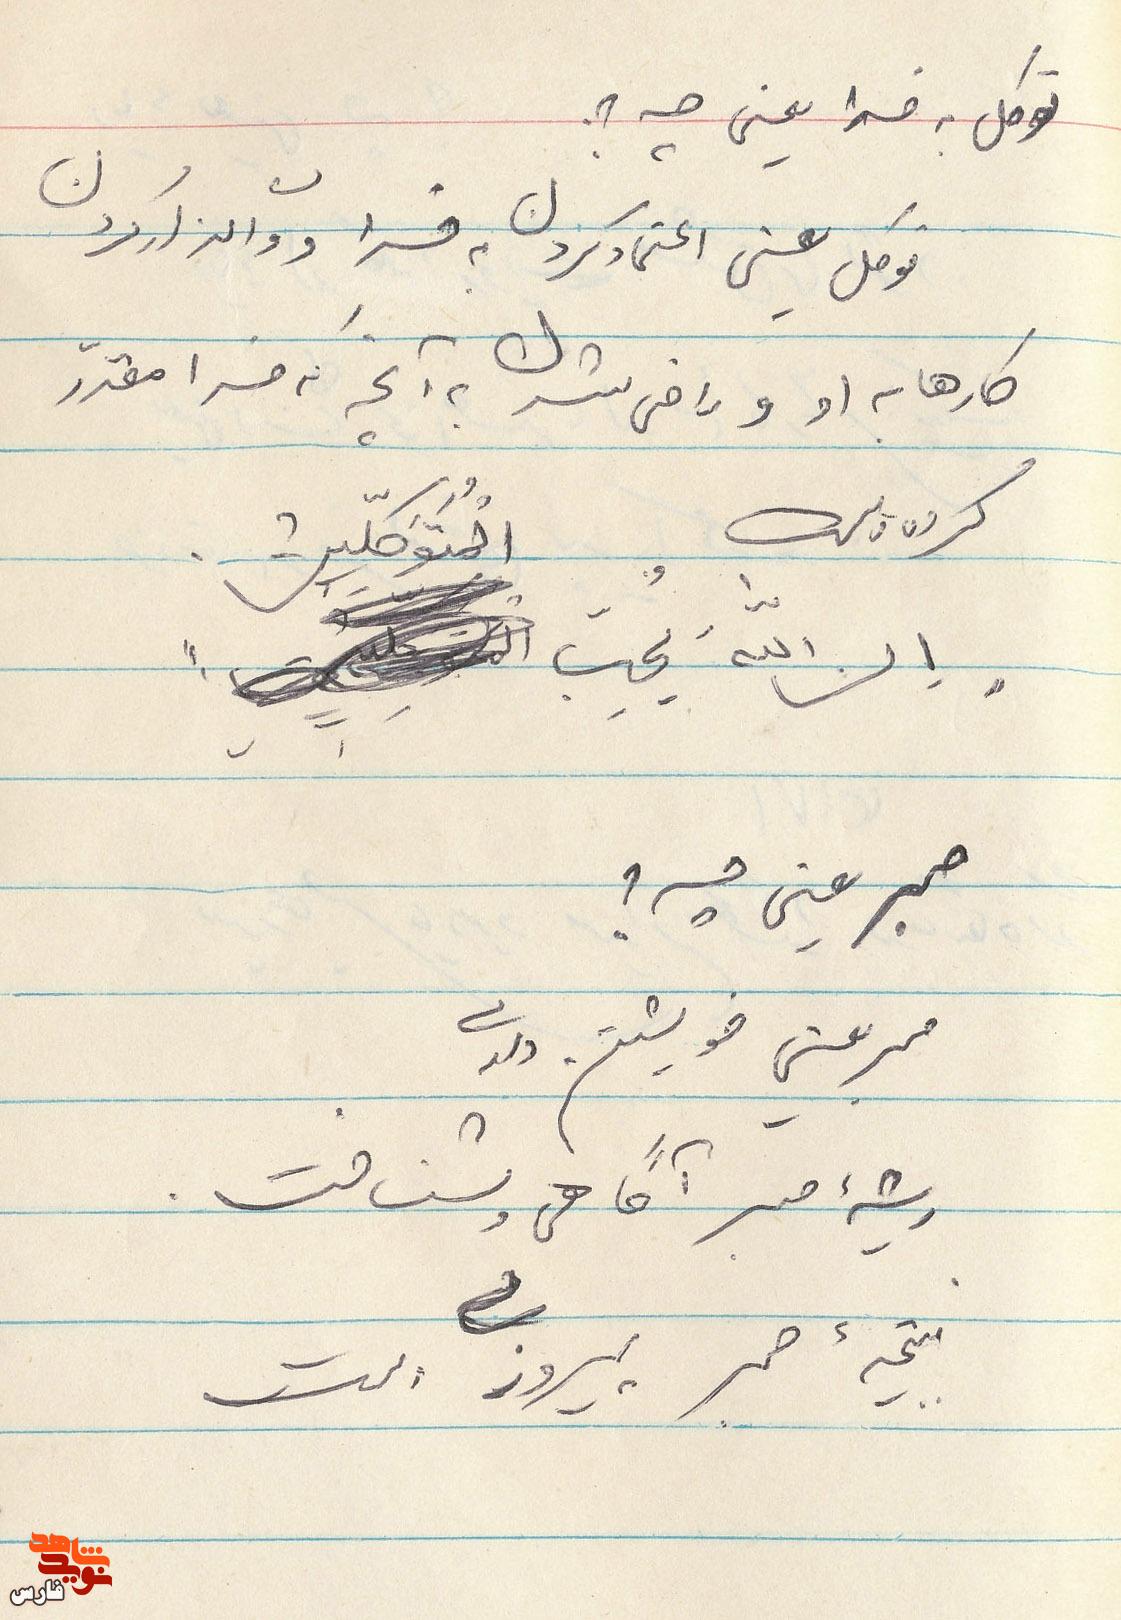 توکل به خدا یعنی چه؟
توکل یعنی اعتماد کردن به خدا و واگذار کردن
کارها به او و راضی شدن به آنچه که خدا مقدّر
کرده است
الْمُتَوَکِّلین.
"اِن اللّهَ یُحِبُّ"
صبر یعنی چه؟
صبر یعنی خویشتن داری
ریشهٔ صبر آگاهی و شناخت.
نتیجهٔ صبر پیروزی است
نوید شاهد
فارس